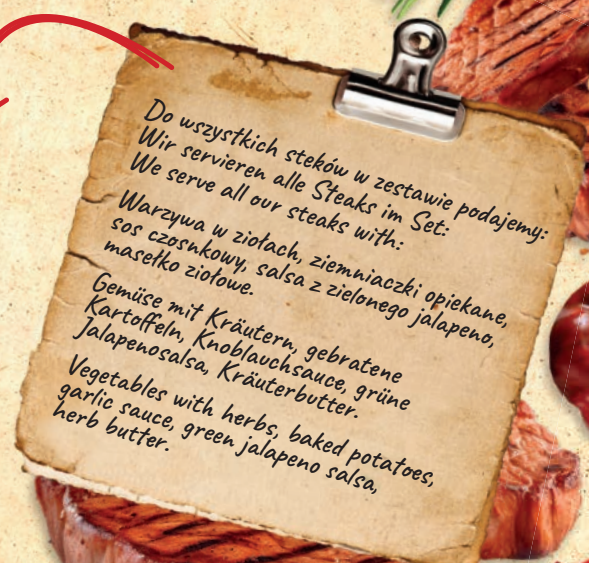 Do wszystkich steków w zestawie podajemy:
Wir servieren alle Steaks im Set:
We serve all our steaks with:
Warzywa w ziołach, ziemniaczki opiekane,
sos czosnkowy, salsa z zielonego jalapeno,
masełko ziołowe.
Gemüse mit Kräutern, gebratene
Kartoffeln, Knoblauchsauce, grüne
Jalapenosalsa, Kräuterbutter.
Vegetables with herbs, baked potatoes,
garlic sauce, green jalapeno salsa,
herb butter.